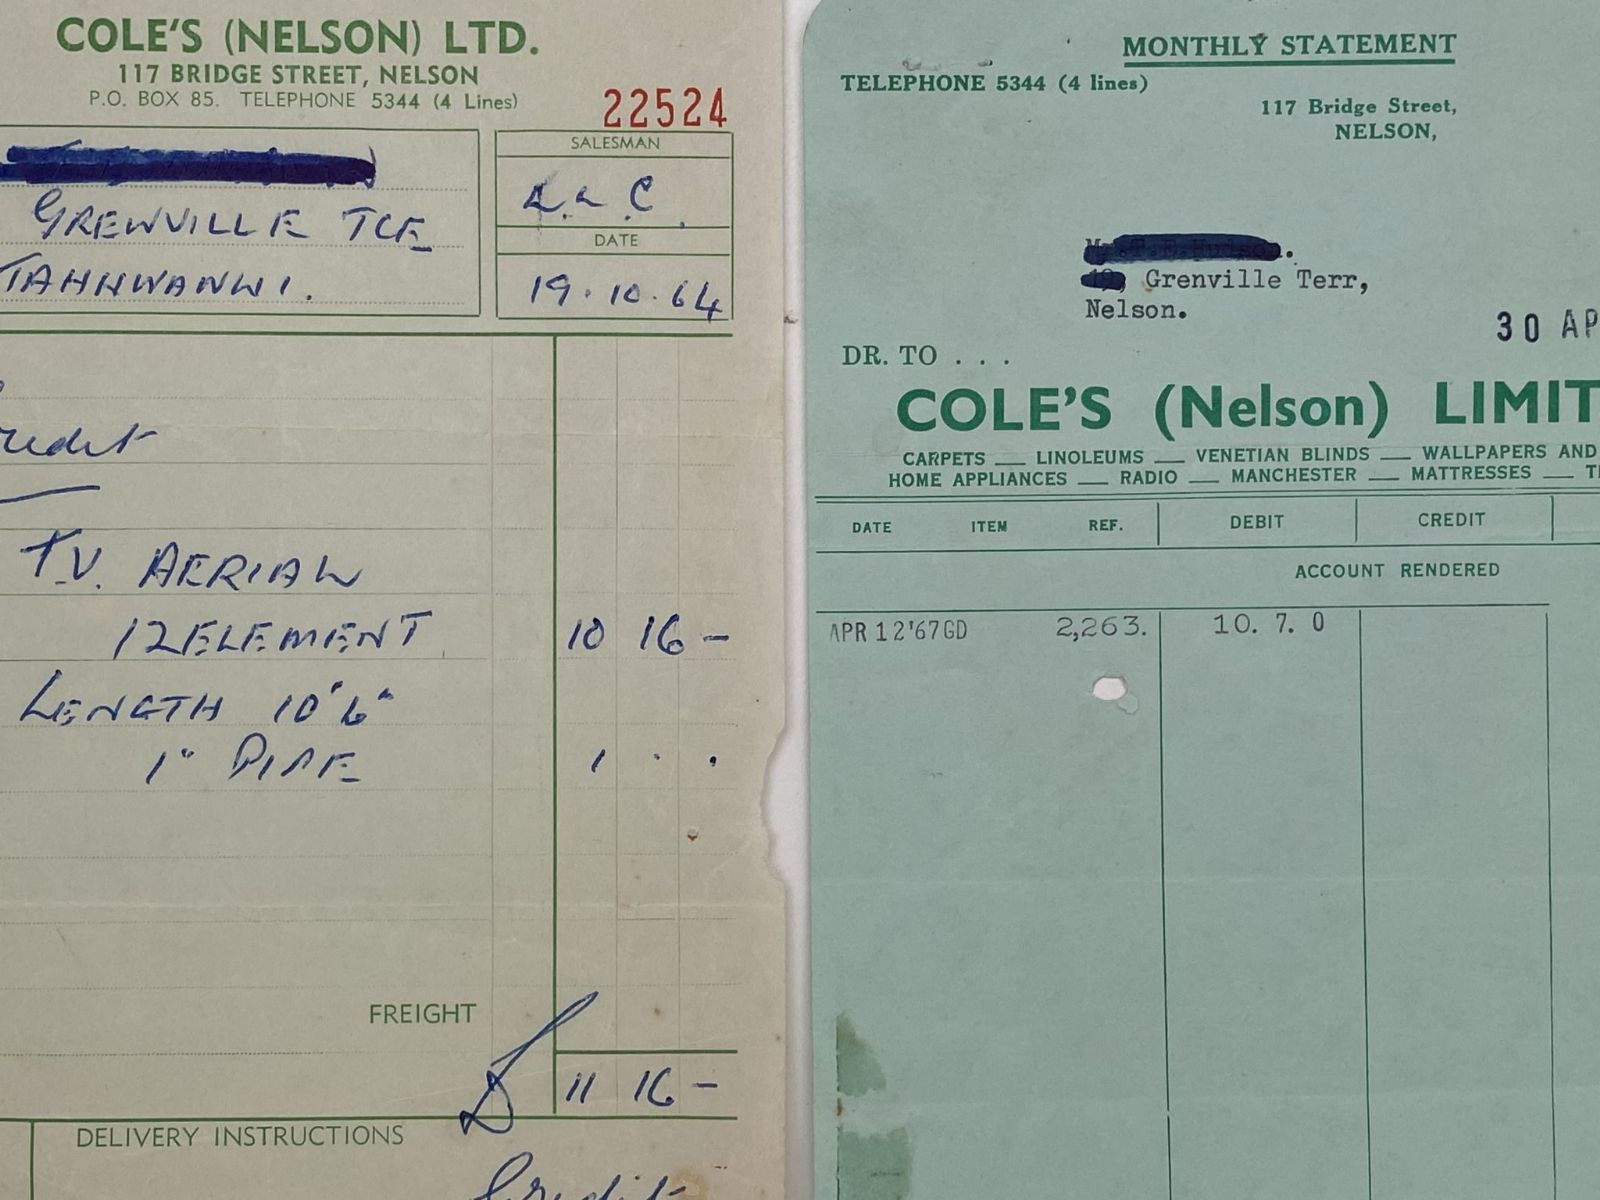 COLE'S (NELSON) LTD.
117 BRIDGE STREET, NELSON
P.O. BOX 85. TELEPHONE 5344 (4 Lines)
22524
SALESMAN
GRENVILLE TCE
TAHUNANUI.
DATE
19.10.64
T.V. AERIAL
12 ELEMENT 10 16 -
LENGTH 10'6"
1" PIPE 1 . .
FREIGHT
11 16 -
DELIVERY INSTRUCTIONS
Credit
MONTHLY STATEMENT
TELEPHONE 5344 (4 lines)
117 Bridge Street,
NELSON,
Grenville Terr,
Nelson.
30 AP
DR. TO . . .
COLE'S (Nelson) LIMIT
CARPETS — LINOLEUMS — VENETIAN BLINDS — WALLPAPERS AND
HOME APPLIANCES — RADIO — MANCHESTER — MATTRESSES —
DATE ITEM REF. DEBIT CREDIT
ACCOUNT RENDERED
APR 12'67GD 2,263. 10. 7. 0